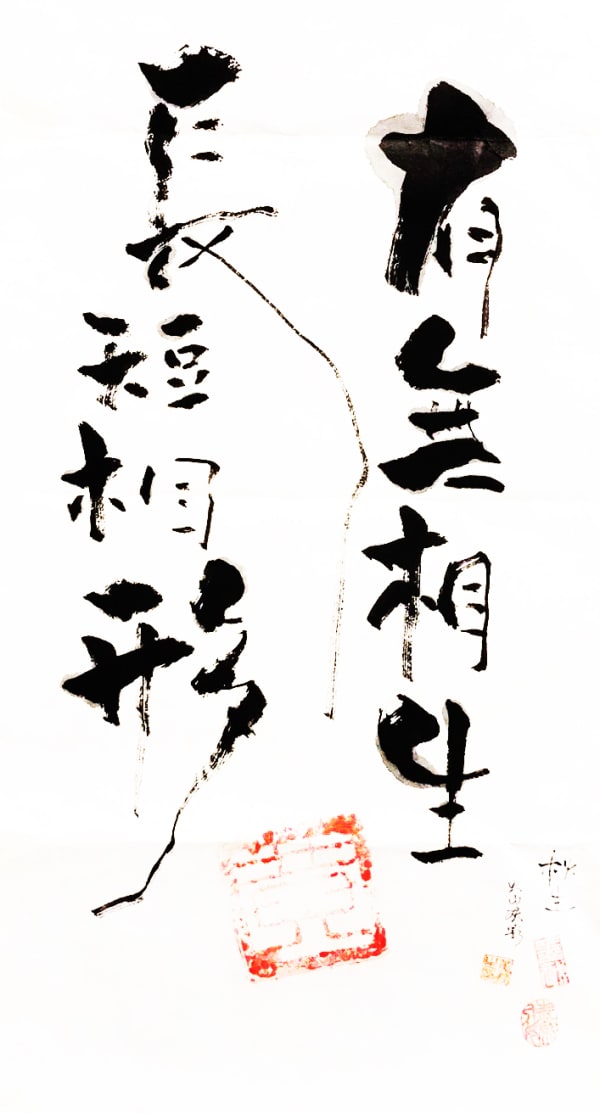 有無相生
長短相形